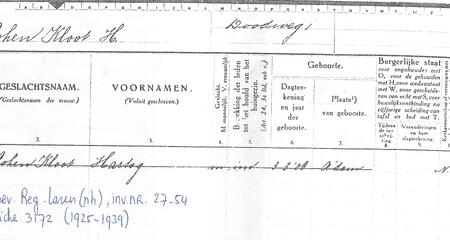 ohen Kloot H. Doodweg 1
GESLACHTSNAAM.
(Geslachtsnaam der vrouw)
VOORNAMEN.
(Voluit geschreven.)
Geslacht
M. mannelijk, V. vrouwelijk
Betrekking der leden
tot het hoofd van het
huisgezin.
Geboorte.
Dagtee-
kening
en jaar
der
geboorte.
Plaats¹)
van geboorte.
Burgerlijke staat
voor ongehuwden met
O, voor de gehuwden
met H, voor weduwstaat
met W, voor gescheiden
van echt met S, voor
huwelijksontbinding na
vijfjarige scheiding van
tafel en bed met T.
Tijdens
Veranderingen
en hare
dagteekening.
2. 3. 4. 5. 6. 7. 8. 9.
ohen Kloot Hartog m A'dam
bev. Reg. Laren (nh), inv.nr. 27-54
fiche 3172 (1925-1939)